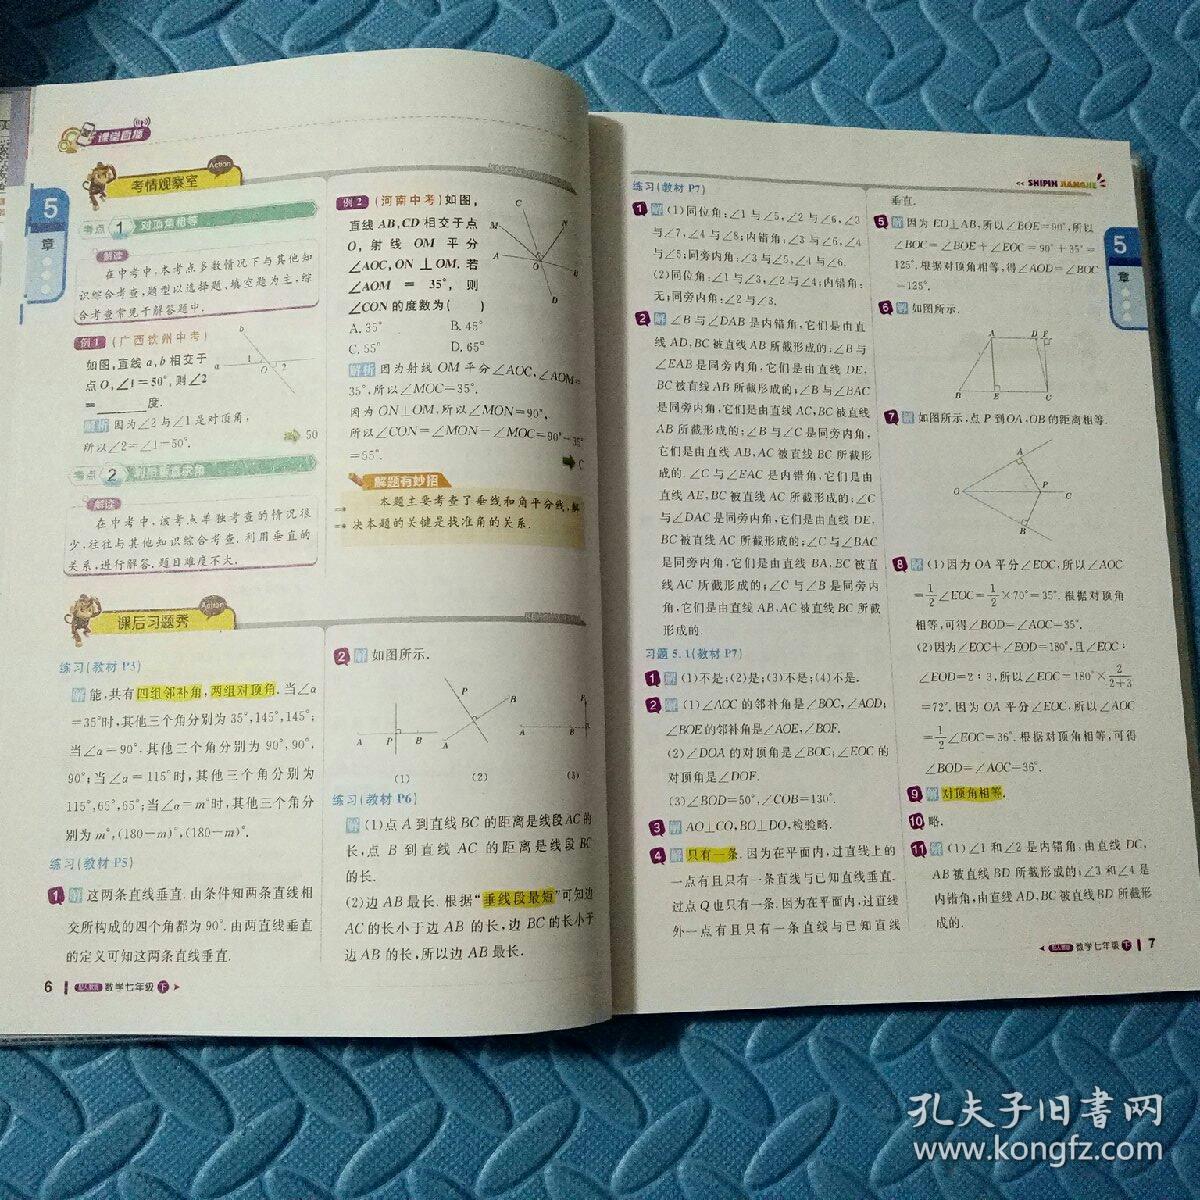 课堂直播
考情观察室
Action
5
章
考点 1 对顶角相等
解读
在中考中,本考点多数情况下与其他知
识综合考查,题型以选择题、填空题为主,综
合考查常见于解答题中.
例1 (广西钦州中考)
如图,直线a,b相交于
点O,∠1=50°,则∠2
=______度.
解析 因为∠2与∠1是对顶角,
所以∠2=∠1=50°.
50
b
a
1
O
2
考点 2
解读
在中考中,该考点单独考查的情况很
少,往往与其他知识综合考查.利用垂直的
关系,进行解答.题目难度不大.
例2 (河南中考)如图,
直线AB,CD相交于点
O,射线OM平分
∠AOC,ON⊥OM.若
∠AOM=35°,则
∠CON的度数为( )
A.35° B.45°
C.55° D.65°
C
M
N
A
O
B
D
解析 因为射线OM平分∠AOC,∠AOM=
35°,所以∠MOC=35°.
因为ON⊥OM,所以∠MON=90°,
所以∠CON=∠MON-∠MOC=90°-35°
=55°.
C
解题有妙招
本题主要考查了垂线和角平分线,解
决本题的关键是找准角的关系.
课后习题秀
Action
练习(教材P3)
解 能,共有四组邻补角,两组对顶角.当∠α
=35°时,其他三个角分别为35°,145°,145°;
当∠α=90°,其他三个角分别为90°,90°,
90°;当∠α=115°时,其他三个角分别为
115°,65°,65°;当∠α=m°时,其他三个角分
别为m°,(180-m)°,(180-m)°.
练习(教材P5)
1 解 这两条直线垂直.由条件知两条直线相
交所构成的四个角都为90°.由两直线垂直
的定义可知这两条直线垂直.
2 解 如图所示.
A P B
(1)
P
A
B
(2)
P
A
B
(3)
练习(教材P6)
解 (1)点A到直线BC的距离是线段AC的
长,点B到直线AC的距离是线段BC
的长.
(2)边AB最长.根据“垂线段最短”可知边
AC的长小于边AB的长,边BC的长小于
边AB的长,所以边AB最长.
6 配人教版 数学七年级 下
SHIPIN JIANGJIE
练习(教材P7)
1 解 (1)同位角:∠1与∠5,∠2与∠6,∠3
与∠7,∠4与∠8;内错角:∠3与∠6,∠4
与∠5;同旁内角:∠3与∠5,∠4与∠6.
(2)同位角:∠1与∠3,∠2与∠4;内错角:
无;同旁内角:∠2与∠3.
2 解 ∠B与∠DAB是内错角,它们是由直
线AD,BC被直线AB所截形成的;∠B与
∠EAB是同旁内角,它们是由直线DE,
BC被直线AB所截形成的;∠B与∠BAC
是同旁内角,它们是由直线AC,BC被直线
AB所截形成的;∠B与∠C是同旁内角,
它们是由直线AB,AC被直线BC所截形
成的.∠C与∠EAC是内错角,它们是由
直线AE,BC被直线AC所截形成的;∠C
与∠DAC是同旁内角,它们是由直线DE,
BC被直线AC所截形成的;∠C与∠BAC
是同旁内角,它们是由直线BA,BC被直
线AC所截形成的;∠C与∠B是同旁内
角,它们是由直线AB,AC被直线BC所截
形成的.
习题5.1(教材P7)
1 解 (1)不是;(2)是;(3)不是;(4)不是.
2 解 (1)∠AOC的邻补角是∠BOC,∠AOD;
∠BOE的邻补角是∠AOE,∠BOF.
(2)∠DOA的对顶角是∠BOC;∠EOC的
对顶角是∠DOF.
(3)∠BOD=50°,∠COB=130°.
3 解 AO⊥CO,BO⊥DO,检验略.
4 解 只有一条.因为在平面内,过直线上的
一点有且只有一条直线与已知直线垂直.
过点Q也只有一条.因为在平面内,过直线
外一点有且只有一条直线与已知直线
垂直.
5 解 因为EO⊥AB,所以∠BOE=90°,所以
∠BOC=∠BOE+∠EOC=90°+35°=
125°.根据对顶角相等,得∠AOD=∠BOC
=125°.
6 解 如图所示.
A D F
B E C
7 解 如图所示,点P到OA,OB的距离相等.
A
O P C
B
8 解 (1)因为OA平分∠EOC,所以∠AOC
=1/2∠EOC=1/2×70°=35°.根据对顶角
相等,可得∠BOD=∠AOC=35°.
(2)因为∠EOC+∠EOD=180°,且∠EOC:
∠EOD=2:3,所以∠EOC=180°×2/(2+3)
=72°.因为OA平分∠EOC,所以∠AOC
=1/2∠EOC=36°.根据对顶角相等,可得
∠BOD=∠AOC=36°.
9 解 对顶角相等.
10 略.
11 解 (1)∠1和∠2是内错角,由直线DC,
AB被直线BD所截形成的;∠3和∠4是
内错角,由直线AD,BC被直线BD所截形
成的.
5
章
配人教版 数学七年级 下 7
孔夫子旧书网
www.kongfz.com